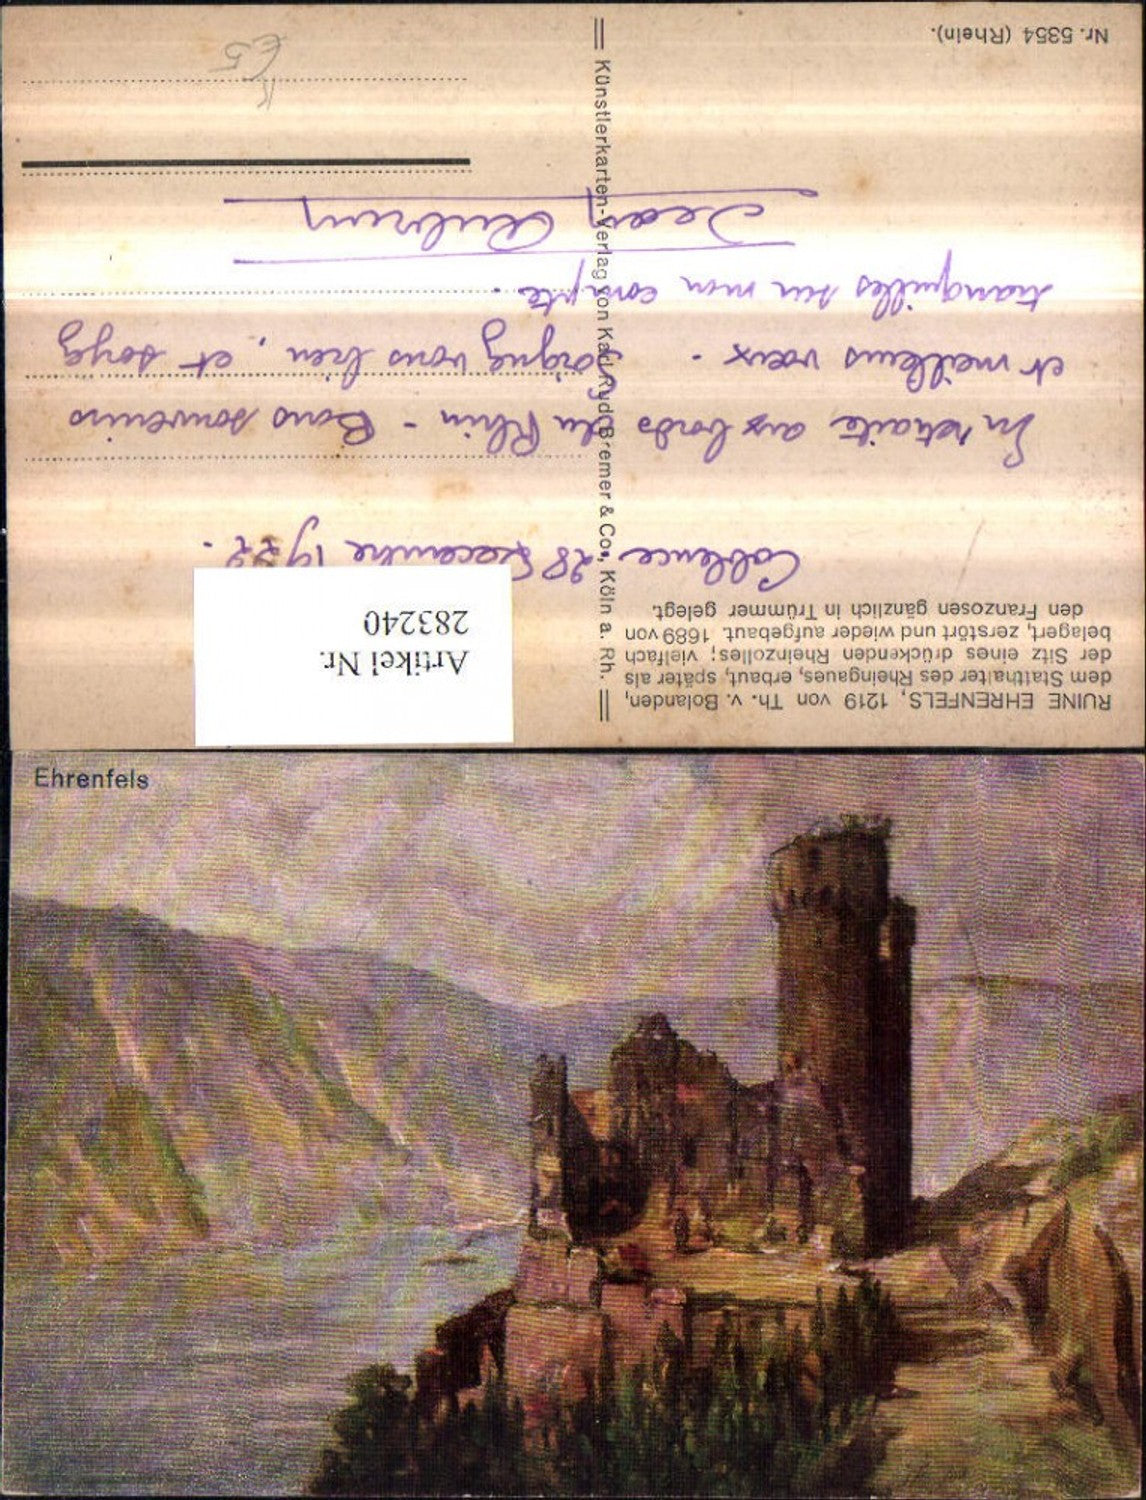 Nr. 5354 (Rhein).
RUINE EHRENFELS, 1219 von Th. v. Bolanden,
dem Statthalter des Rheingaues, erbaut, später als
der Sitz eines drückenden Rheinzolles; vielfach
belagert, zerstört und wieder aufgebaut. 1689 von
den Franzosen gänzlich in Trümmer gelegt.
Künstlerkarten-Verlag von Karl Rud. Bremer & Co., Köln a. Rh.
Artikel Nr.
283240
Coblence 28 Decembre 19
En retraite aux bords du Rhin - Bons souvenirs
et meilleurs vœux. Soignez vous bien, et soyez
tranquilles sur mon compte.
Jean
Ehrenfels